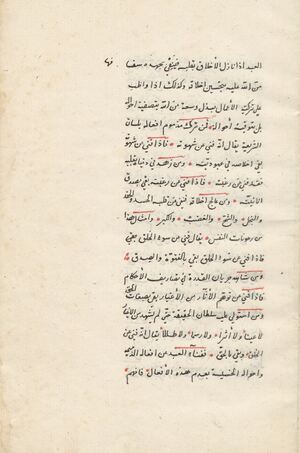 العبد اذا نازل الأخلاق بقلبه فينفي بجهده سفسا
فها
منّ الله عليه بتحسين اخلاقه وكذلك اذا واظب
على تزكية الأعمال ببذل وسعه منّ الله بتصفية احواله
بل بتوفية احواله فمن ترك مذموم افعاله بلسان
الشريعة يقال فني عن شهوته فاذا فني عن شهوته
بقي اخلاصه في عبوديته ومن زهد في دنياه بقلبه
فقد فني عن رغبته فاذا فني عن رغبته بقي بصدق
انابته ومن عالج اخلاقه فنفى عن قلبه الحسد والحقد
والبخل والشح والغضب والكبر وامثال هذا
من رعونات النفس يقال فني عن سوء الخلق بقي
فاذا فني عن سوء الخلق بقي بالفتوة والصدق
ومن شاهد جريان القدرة في تصاريف الأحكام
فاذا فني عن توهم الآثار من الأغيار بقي بصفات الحق
ومن استولى عليه سلطان الحقيقة حتى لم يشهد من الأغيار
لا عينا ولا أثرا ولا رسما ولا طللا يقال انه فني عن
الخلق وبقي بالحق ففناء العبد عن افعاله الذميمة
واحواله الخسيسة بعدم هذه الأفعال فافهم